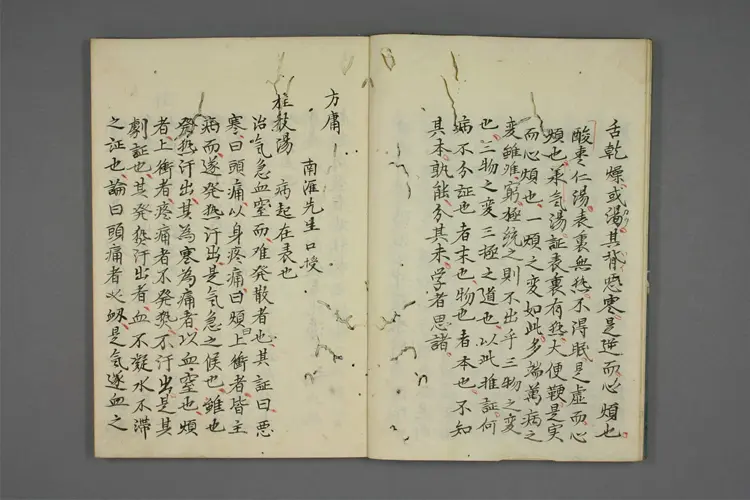 舌乾燥或渇其背悪寒是逆而心煩也
酸枣仁湯表裏無熱不得眠是虚而心
煩也承気湯証表裏有熱大便鞕是実
而心煩也一煩之変如此多端萬病之
変雖难窮極統之則不出乎三物之変
也三物之変三極之道也以此推証何
病不分証也者末也物也者本也不知
其本孰能分其末学者思諸
方庸
南涯先生口授
桂枝湯 病起在表也
治气急血窒而难発散者也其証曰悪
寒曰頭痛以身疼痛曰煩曰上衝者皆主
病而遂発熱汗出是気急之候也雖也
発熱汗出其為寒為痛者以血窒也煩
者上衝者疼痛者不発熱不汗出是其
劇証也其発熱汗出者血不凝水不滞
之証也論曰頭痛者必衂是気逐血之